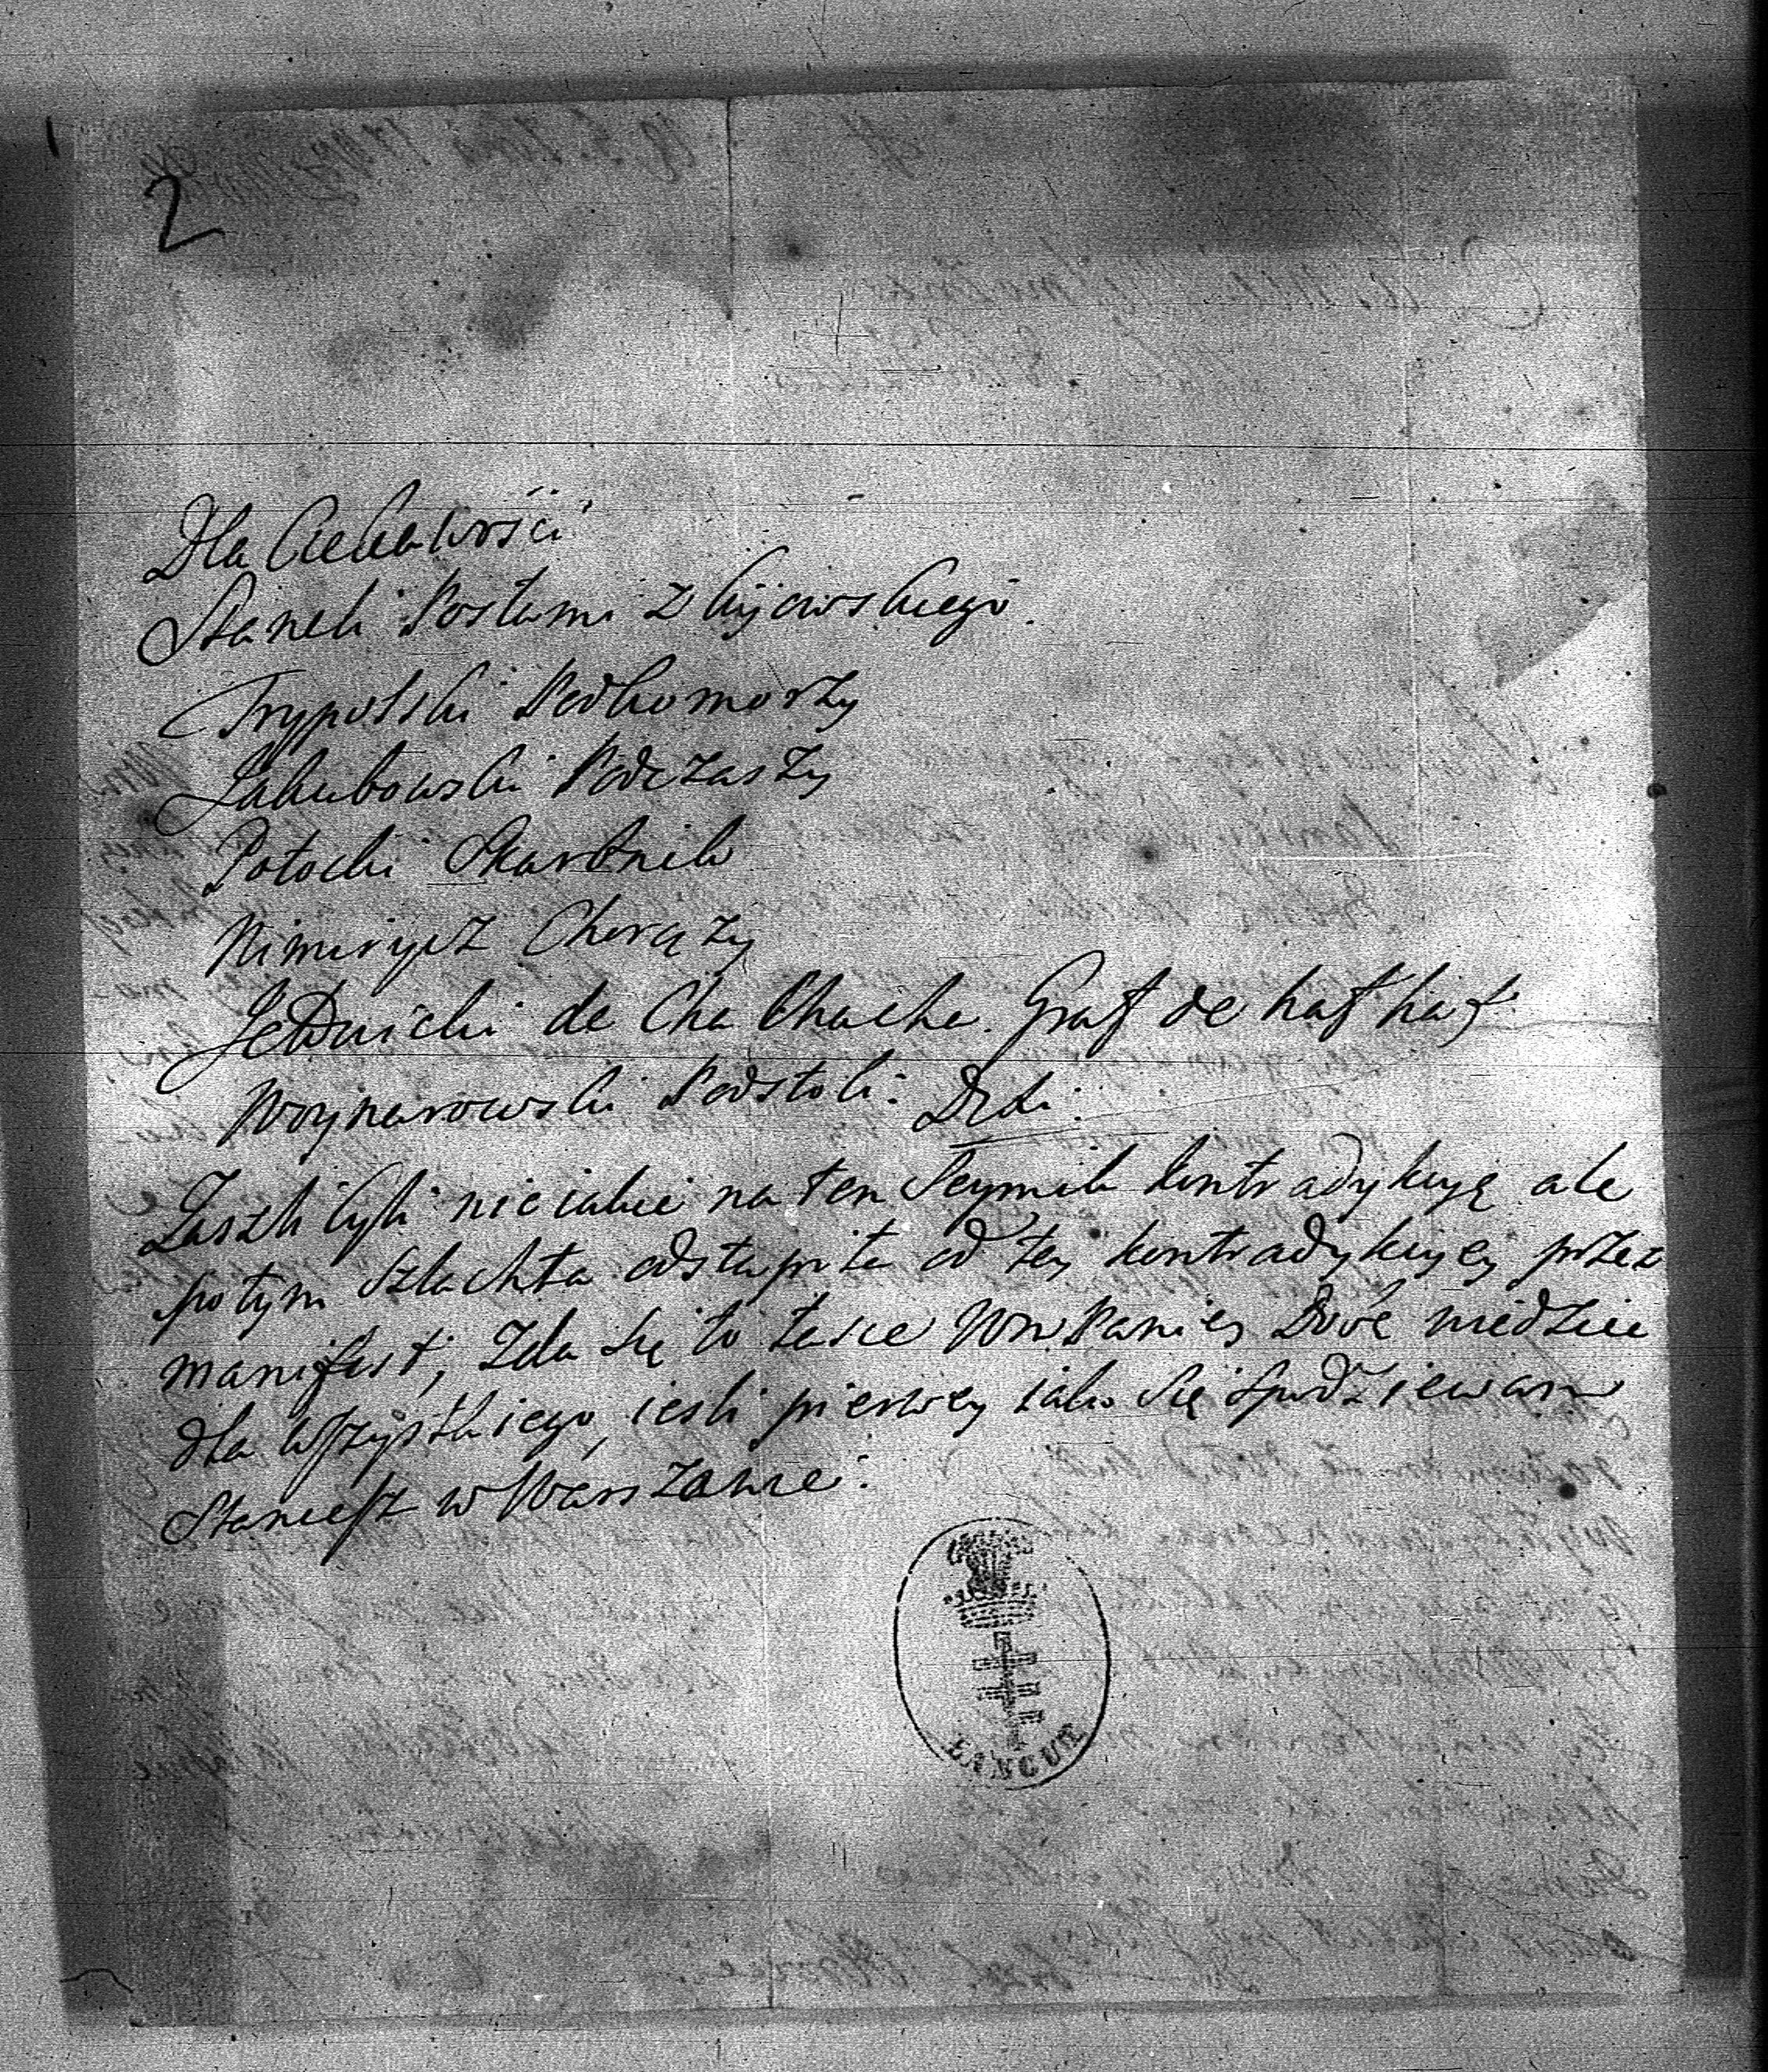 2
Dla Ciekawości
Stanęli Posłami z kijowskiego.
Trypolski Podkomorzy
Jakubowski Podczaszy
Potocki Skarbnik
Nimirycz Chorąży
de Cha Chacha. Graf de haf haf.
Woynarowski Podstoli.
Zaszli byli nie iakie na ten Seymik kontradykcyę ale
potym szlachta odstąpiła od tey kontradykcyey przez
manifest, zda się to łasce Wm Paniey Dobr. wiedzieć
dla wszystkiego, iesli pierwey iako się spodziewam
Staniesz w Warszawie.
ŁAŃCUT